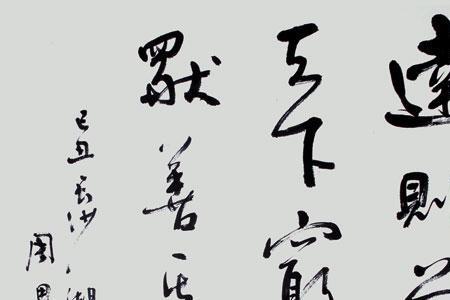 達則
天下窮
獨善其
己丑長沙
周